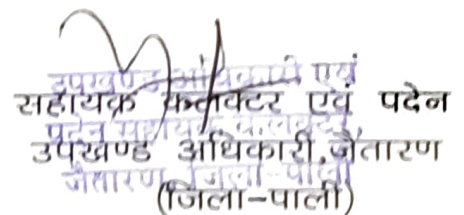 उपखण्ड अधिकारी एवं
सहायक कलक्टर एवं पदेन
पदेन सहायक कलक्टर,
उपखण्ड अधिकारी, जैतारण
जैतारण जिला-पाली
(जिला-पाली)